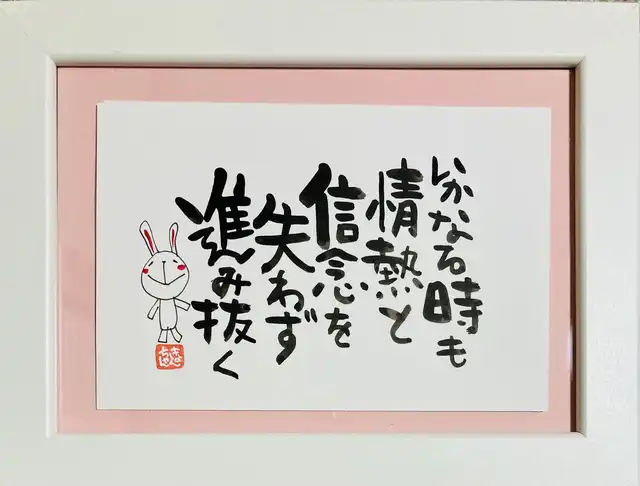 いかなる時も
情熱と
信念を
失わず
進み抜く